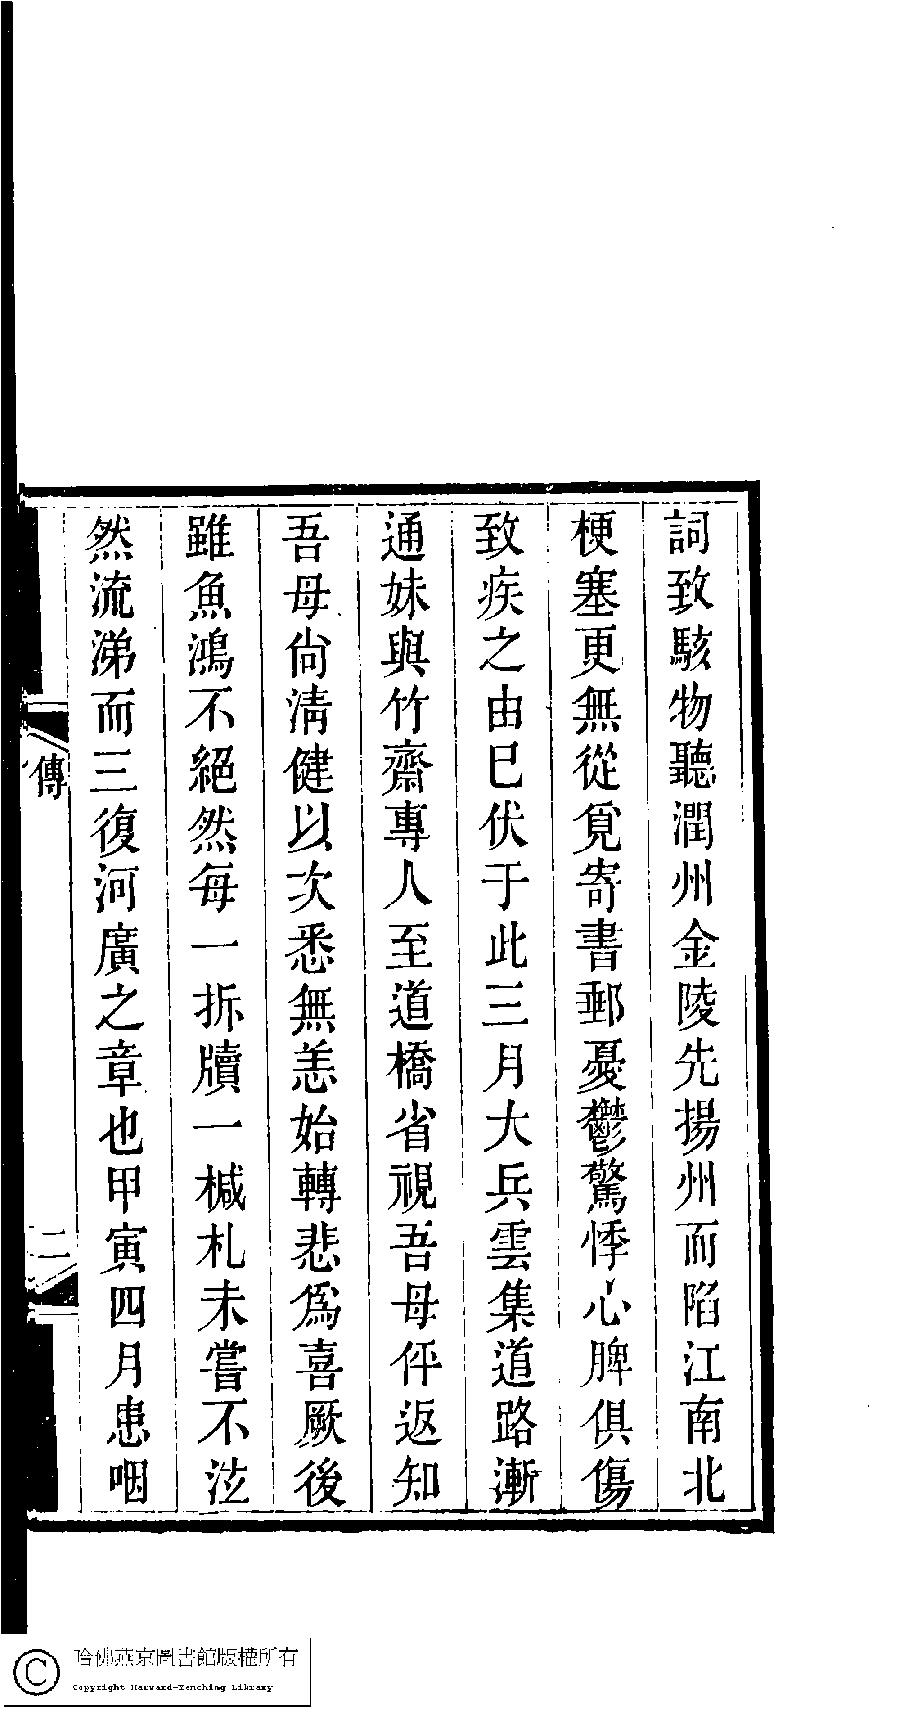 詞致駭物聽潤州金陵先揚州而陷江南北
梗塞更無從覓寄書郵憂鬱驚悸心脾俱傷
致疾之由巳伏于此三月大兵雲集道路漸
通妹與竹齋專人至道橋省視吾母伻返知
吾母尙清健以次悉無恙始轉悲爲喜厥後
雖魚鴻不絕然每一拆牘一椷札未嘗不泫
然流涕而三復河廣之章也甲寅四月患咽
傳
二
哈佛燕京圖書館版權所有
Copyright Harvard-Yenching Library